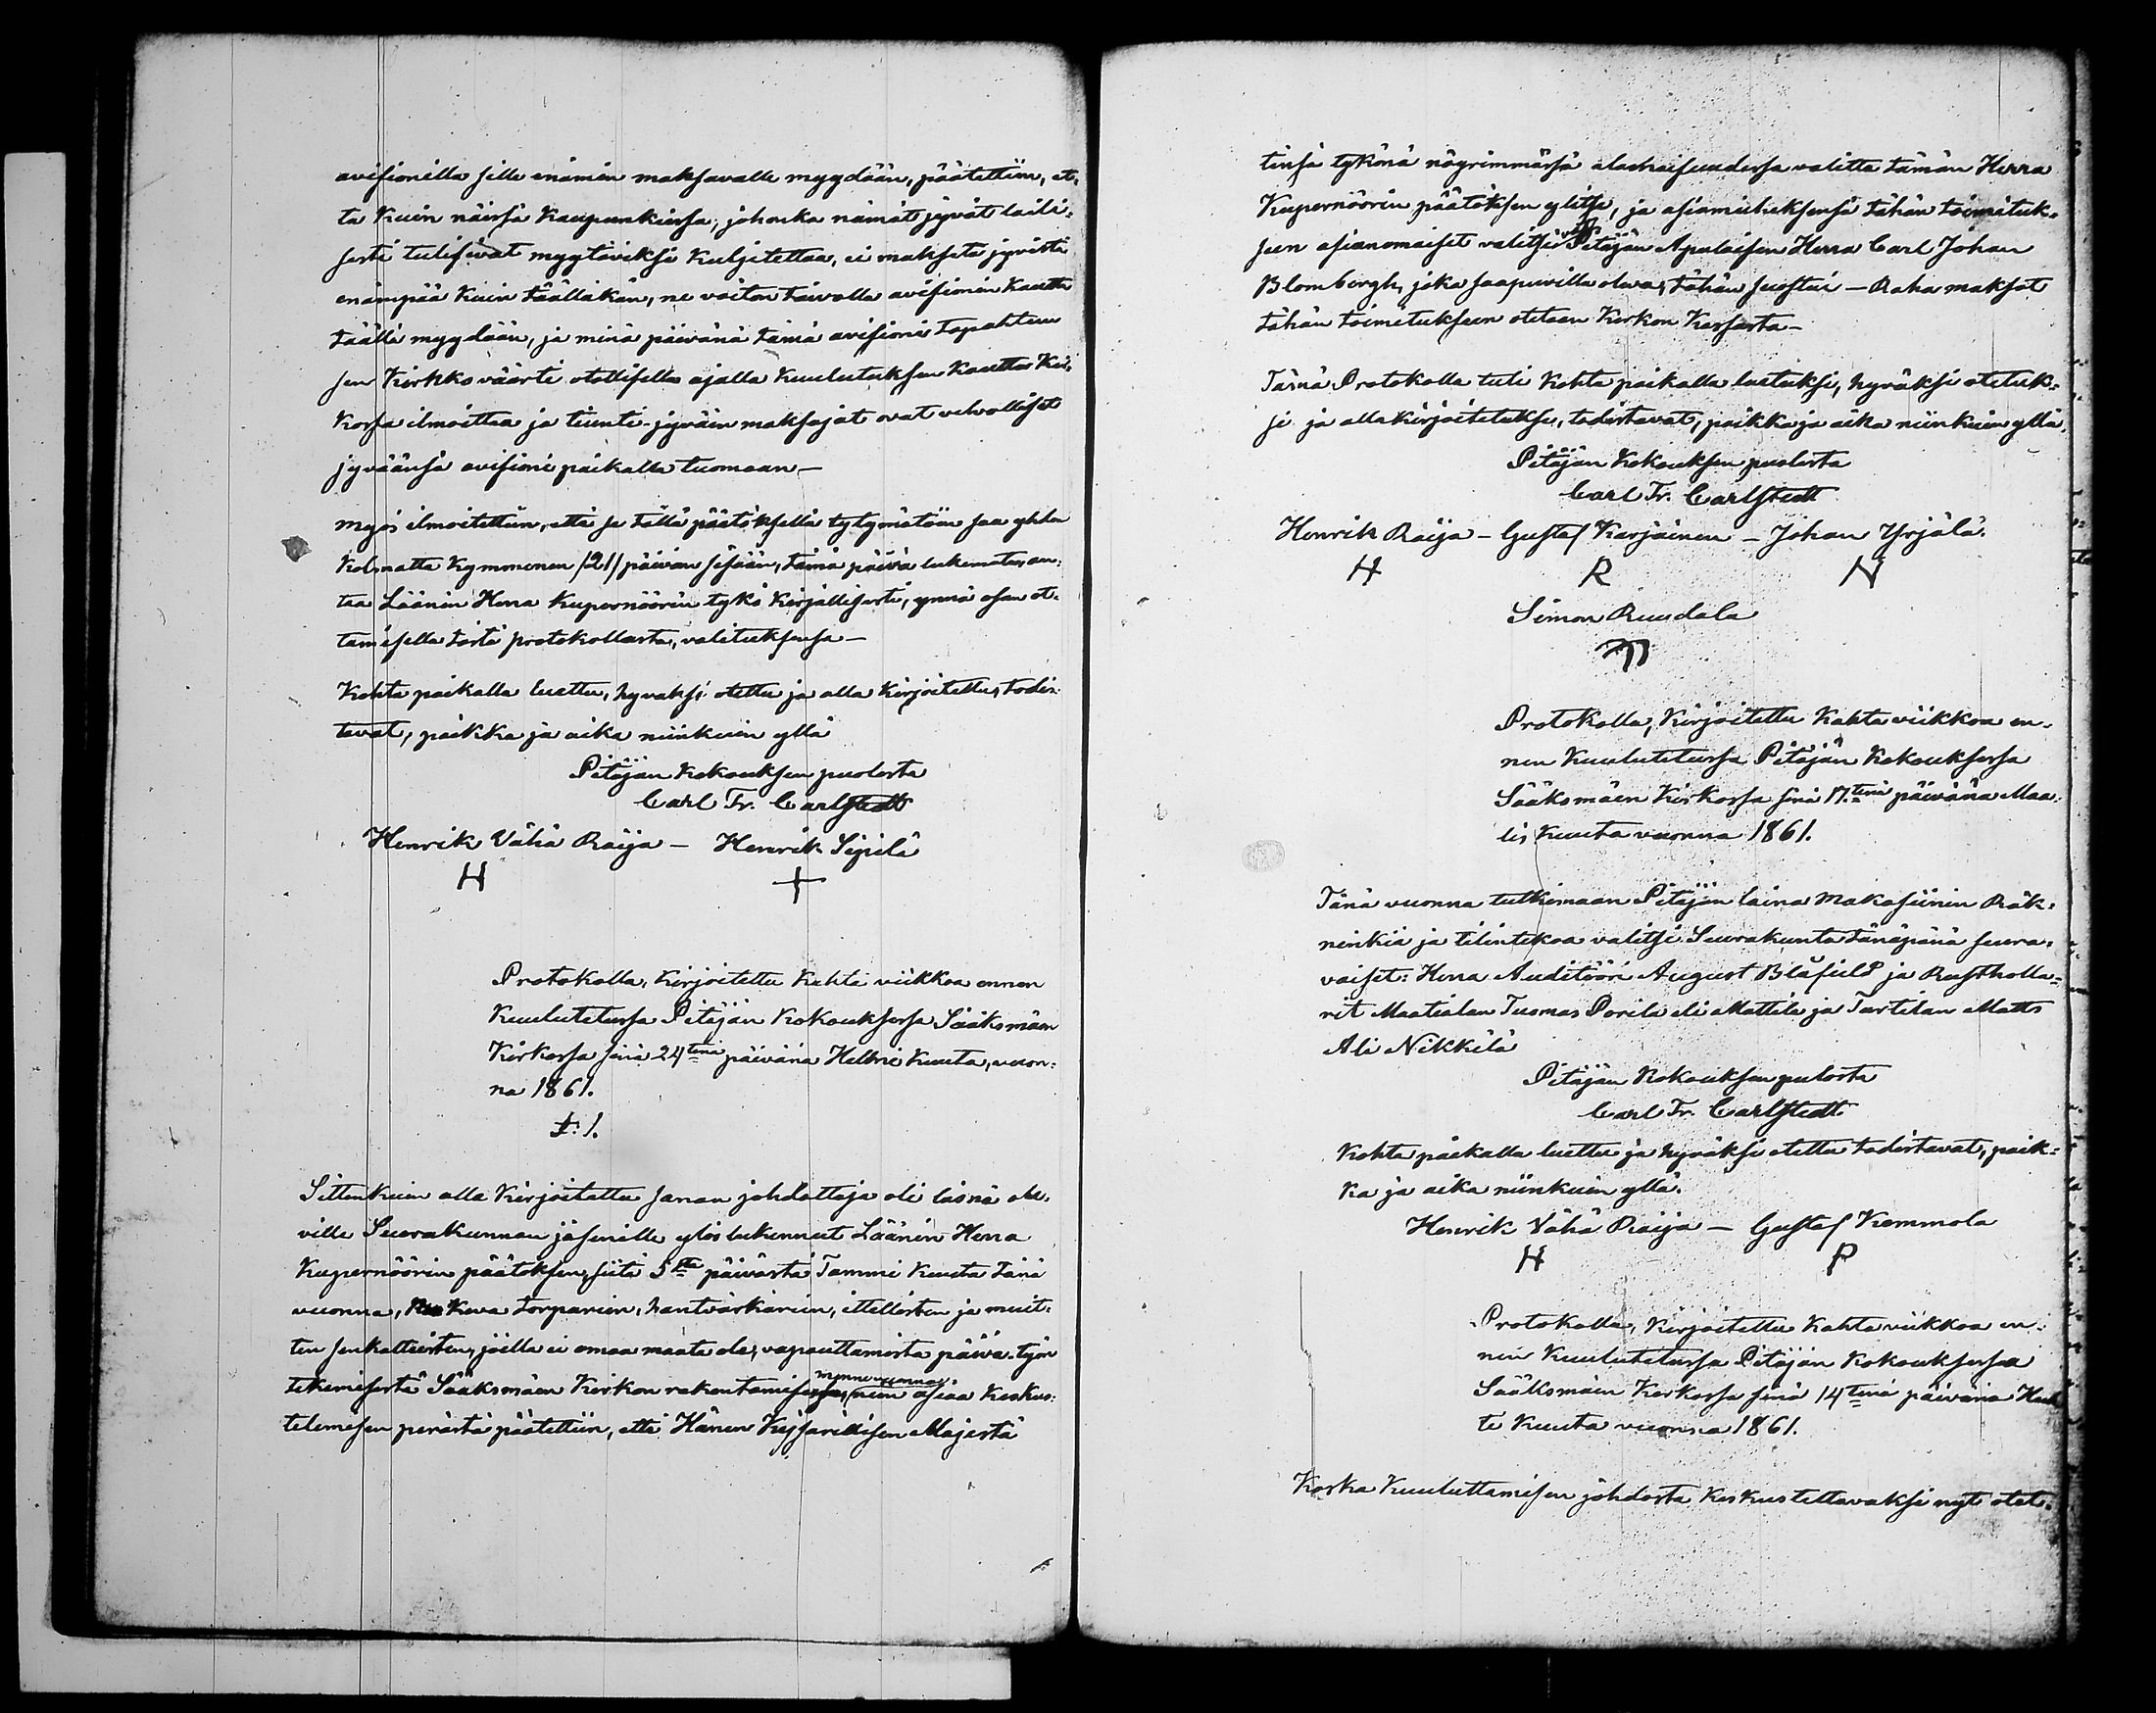 avisionilla sille enämin maksavalle myydään, päätettiin, et-
ta kuin näissä Kaupunkiissa, johonka nämät jyvät laili-
sesti tulisivat myytäviksi kuljetettaa, ei makseta jyvistä
enämpää kuin täälläkän, ne voiton toivolla avisionin kautta
täällä myydään, ja minä päivänä tämä avisioni tapahtuu
sen Kirkkoväärti otollisella ajalla kuulutuksen kautta Kir-
kossa ilmoittaa ja tiunti-jyväin maksajat ovat velvolliset
jyväänsä avisioni paikalla tuomaan –
Myös ilmoitettiin, että se tällä päätöksellä tytymätöin saa yhden
kolmatta kymmenen /21/ päivän sisään, tämä päivä lukemata, an-
taa Läänin Herra Kupernöörin tykö kirjallisesti, ynnä osan ot-
tamisella tästä protokollasta, valituksensa –
Kohta paikalla luettu, hyväksi otettu ja alla kirjoitettu, todis-
tavat, paikka ja aika niinkuin yllä
Pitäjän Kokouksen puolesta
Carl Fr. Carlstedt
Henrik Vähä Räija – Henrik Sipilä
H +
Protokolla, kirjoitettu kahta viikkoa ennen
kuulutetussa Pitäjän Kokouksessa Sääksmäen
Kirkossa sinä 24tenä päivänä Helmi kuuta, vuon-
na 1861.
§: 1.
Sittenkuin alla kirjoitettu sanan johdattaja oli läsnä ole-
ville Seurakunnan jäsenille ylös lukennut Läänin Herra
Kupernöörin päätöksen, siitä 5ta päivästä Tammi kuuta tänä
vuonna, kuva torparien, hantvärkärien, itellisten ja muit-
ten senkaltaisten, joilla ei omaa maata ole, vapauttamista päivä-työn
tekemisestä Sääksmäen Kirkon rakentamisessa menneevuonna, niin asiaa keskus-
telemisen perästä päätettiin, että Hänen Keisarillisen Majestä
tinsä tykönä nöyrimmässä alachaisuudessa valitta tämän Herra
Kupernöörin päätöksen ylitse, ja asiamieheksensä tähän toimituk-
seen asianomaiset valitsivat Pitäjän Apulaisen Herra Carl Johan
Blombergh, joka saapuvilla oleva, tähän suostui – Raha maksot
tähän toimitukseen otetaan Kirkon Kassasta –
Tämä Protokolla tuli kohta paikalla luetuksi, hyväksi otetuk-
si ja alla kirjoitetuksi, todistavat, paikka ja aika niinkuin yllä.
Pitäjän Kokouksen puolesta
Carl Fr. Carlstedt
Henrik Räija – Gustaf Karjainen – Johan Yrjälä.
H R N
Simon Ruudala
Protokolla, kirjoitettu kahta viikkoa en-
nen kuulutetussa Pitäjän Kokouksessa
Sääksmäen Kirkossa sinä 17.tenä päivänä Maa-
lis kuuta vuonna 1861.
Tänä vuonna tutkimaan Pitäjän laina Makasiinin Räk-
ninkiä ja tilintekoa valitsi Seurakunta tänäpänä seura-
vaiset: Herra Auditööri August Blåfield ja Rustholla-
rit Maatialan Tuomas Porila eli Mattila ja Tartilan Matts
Ali Nikkilä
Pitäjän Kokouksen pulosta
Carl Fr. Carlstedt
Kohta paikalla luettu ja hyväksi otettu todistavat, paik-
ka ja aika niinkuin yllä.
Henrik Vähä Räija – Gustaf Kemmola
H P
Protokolla, kirjoitettu kahta viikkoa en-
nen kuulutetussa Pitäjän Kokouksessa
Sääksmäen Kirkossa sinä 14tenä päivänä Huh
ti kuuta vuonna 1861.
Koska kuuluttamisen johdosta keskusteltavaksi nyt otet-